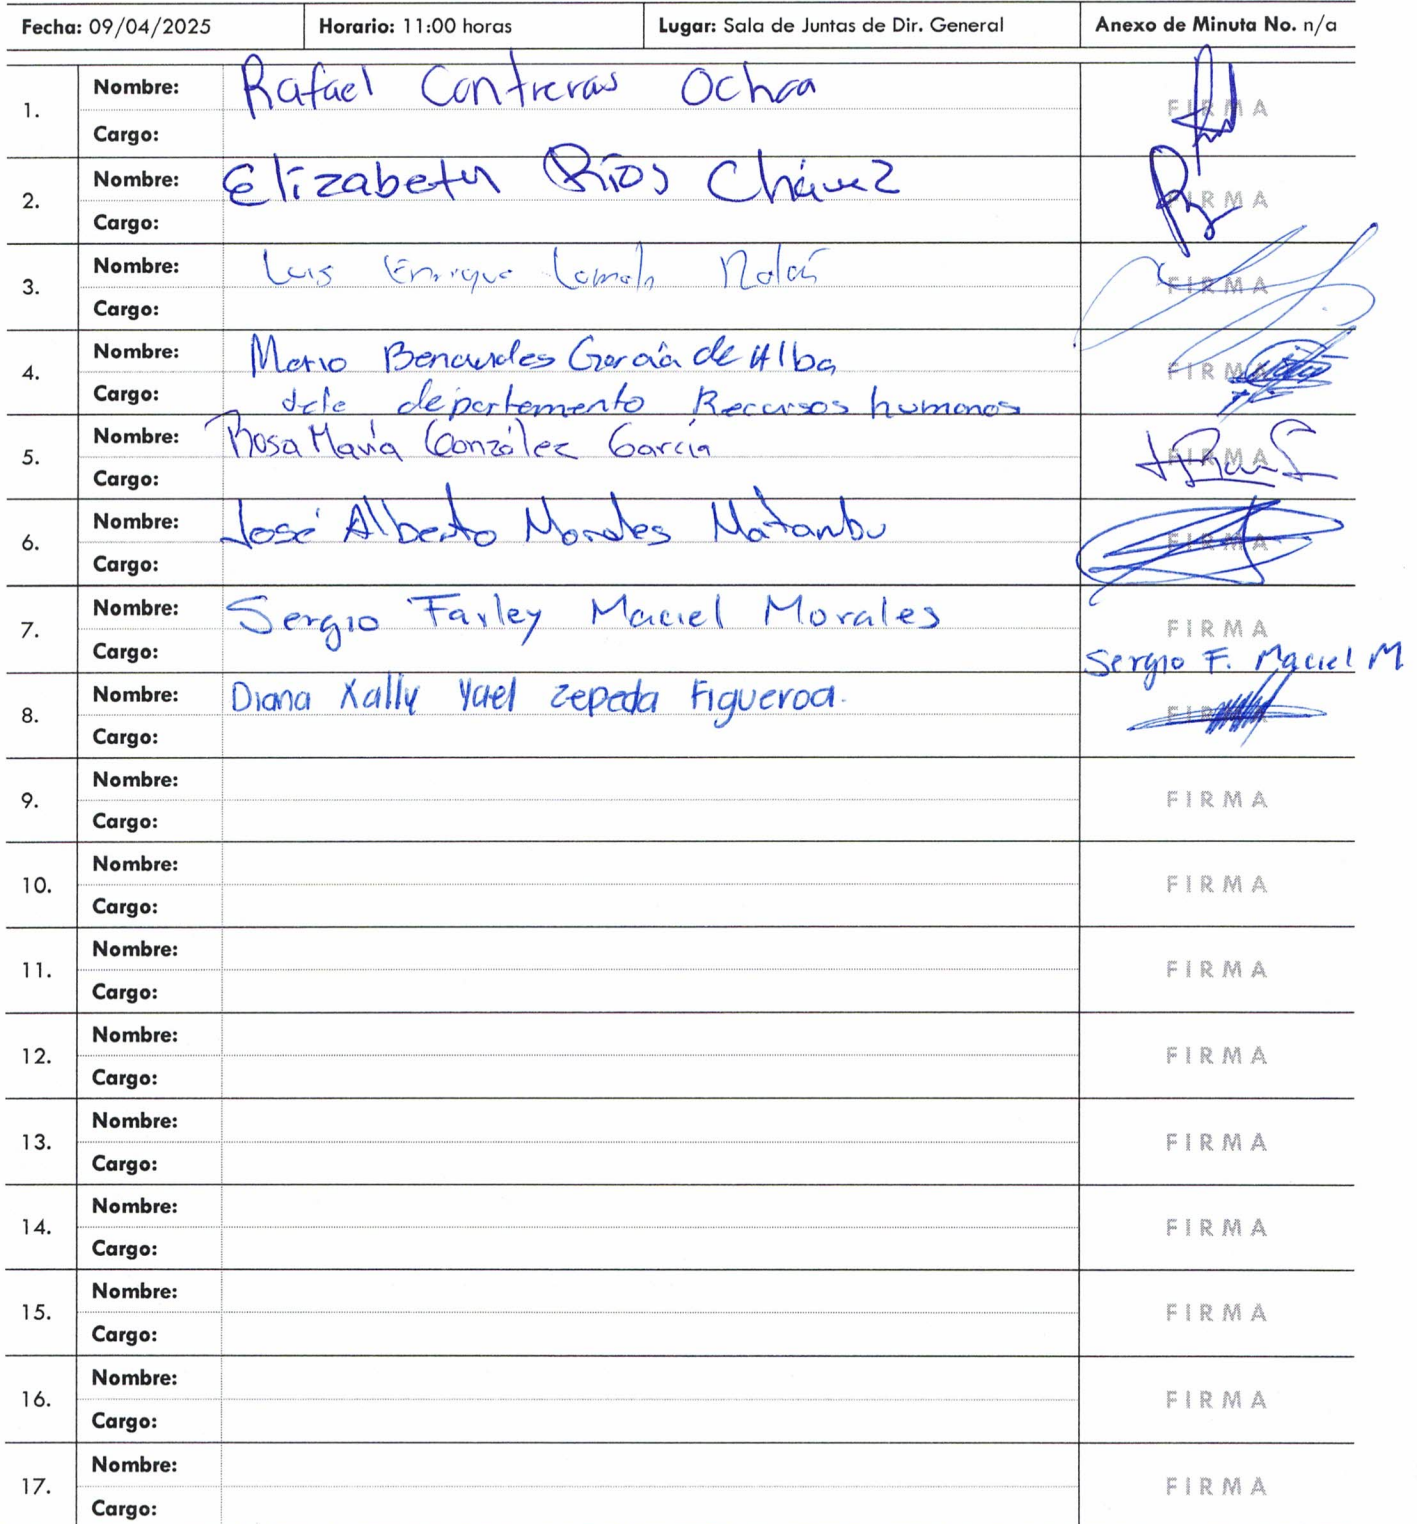 Fecha: 09/04/2025 Horario: 11:00 horas Lugar: Sala de Juntas de Dir. General Anexo de Minuta No. n/a
1. Nombre: Rafael Contreras Ochoa
FIRMA
Cargo:
2. Nombre: Elizabeth Ríos Chávez
FIRMA
Cargo:
3. Nombre: Luis Enrique
FIRMA
Cargo:
4. Nombre: Mario Benavides García de Alba
FIRMA
Cargo: Jefe departamento Recursos humanos
5. Nombre: Rosa María González García
FIRMA
Cargo:
6. Nombre: José Alberto Morales
FIRMA
Cargo:
7. Nombre: Sergio Farley Maciel Morales
FIRMA
Cargo:
Sergio F. Maciel M
8. Nombre: Diana Xally Yael Zepeda Figueroa.
FIRMA
Cargo:
9. Nombre:
FIRMA
Cargo:
10. Nombre:
FIRMA
Cargo:
11. Nombre:
FIRMA
Cargo:
12. Nombre:
FIRMA
Cargo:
13. Nombre:
FIRMA
Cargo:
14. Nombre:
FIRMA
Cargo:
15. Nombre:
FIRMA
Cargo:
16. Nombre:
FIRMA
Cargo:
17. Nombre:
FIRMA
Cargo: